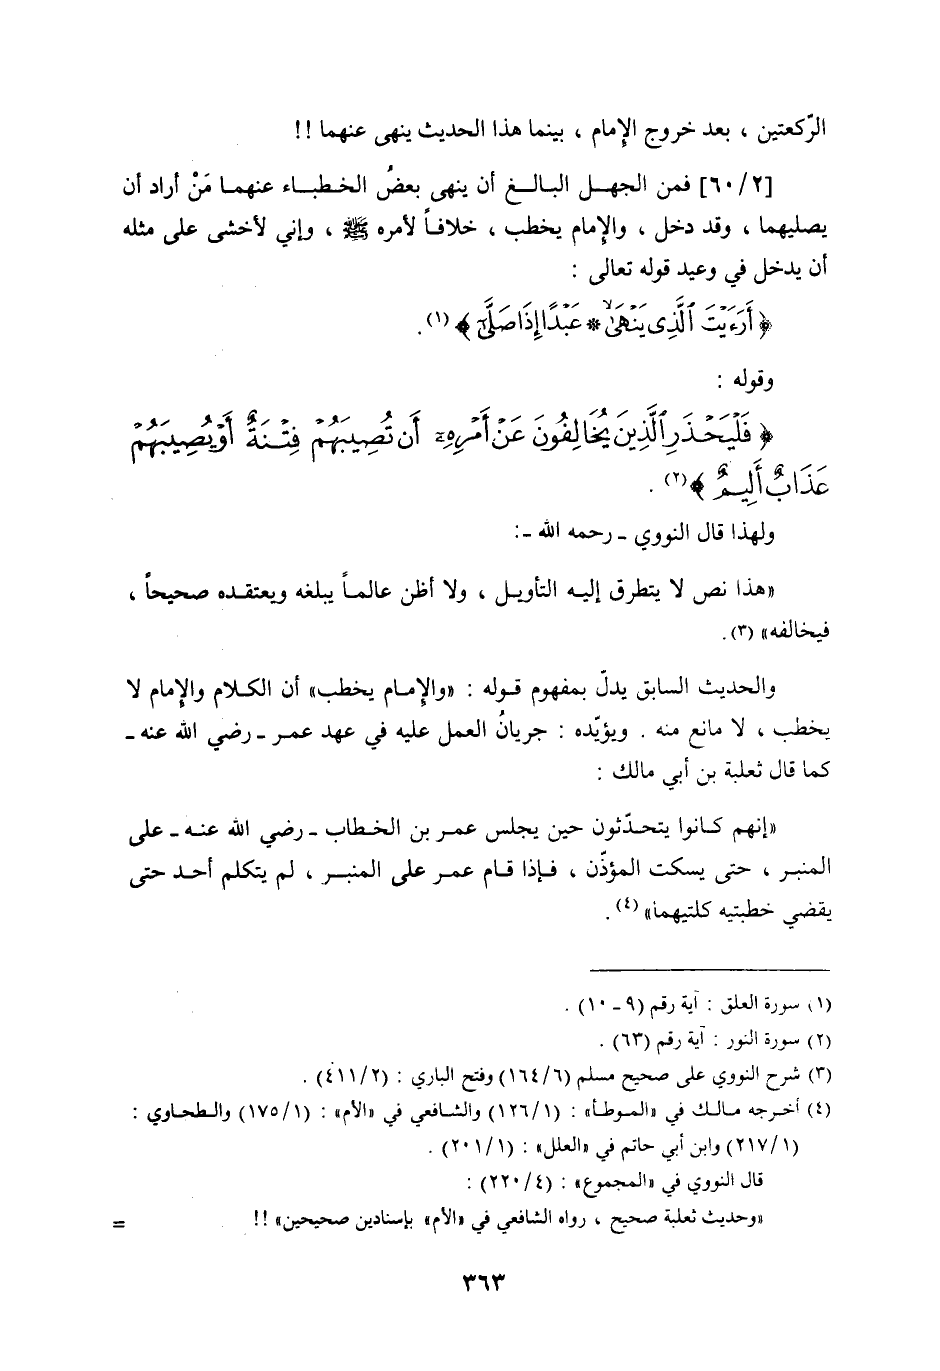 الرّكعتين ، بعد خروج الإمام ، بينما هذا الحديث ينهى عنهما !!
[٢/٦٠] فمن الجهل البالغ أن ينهى بعضُ الخطباء عنهما مَنْ أراد أن
يصليهما ، وقد دخل ، والإمام يخطب ، خلافاً لأمره ﷺ ، وإني لأخشى على مثله
أن يدخل في وعيد قوله تعالى :
﴿ أَرَءَيْتَ ٱلَّذِى يَنْهَىٰ * عَبْدًا إِذَا صَلَّىٰٓ ﴾ (١) .
وقوله :
﴿ فَلْيَحْذَرِ ٱلَّذِينَ يُخَالِفُونَ عَنْ أَمْرِهِۦٓ أَن تُصِيبَهُمْ فِتْنَةٌ أَوْ يُصِيبَهُمْ
عَذَابٌ أَلِيمٌ ﴾ (٢) .
ولهذا قال النووي ـ رحمه الله ـ:
«هذا نص لا يتطرق إليه التأويل ، ولا أظن عالماً يبلغه ويعتقده صحيحاً ،
فيخالفه» (٣).
والحديث السابق يدلّ بمفهوم قوله : «والإمام يخطب» أن الكلام والإمام لا
يخطب ، لا مانع منه . ويؤيّده : جريانُ العمل عليه في عهد عمر ـ رضي الله عنه ـ
كما قال ثعلبة بن أبي مالك :
«إنهم كانوا يتحدّثون حين يجلس عمر بن الخطاب ـ رضي الله عنه ـ على
المنبر ، حتى يسكت المؤذّن ، فإذا قام عمر على المنبر ، لم يتكلم أحد حتى
يقضي خطبتيه كلتيهما» (٤) .
(١) سورة العلق : آية رقم (٩ ـ ١٠) .
(٢) سورة النور : آية رقم (٦٣) .
(٣) شرح النووي على صحيح مسلم (٦/١٦٤) وفتح الباري : (٢/٤١١) .
(٤) أخرجه مالك في «الموطأ» : (١/١٢٦) والشافعي في «الأم» : (١/١٧٥) والطحاوي :
(١/٢١٧) وابن أبي حاتم في «العلل» : (١/٢٠١) .
قال النووي في «المجموع» : (٤/٢٢٠) :
«وحديث ثعلبة صحيح ، رواه الشافعي في «الأم» بإسنادين صحيحين» !! =
٣٦٣